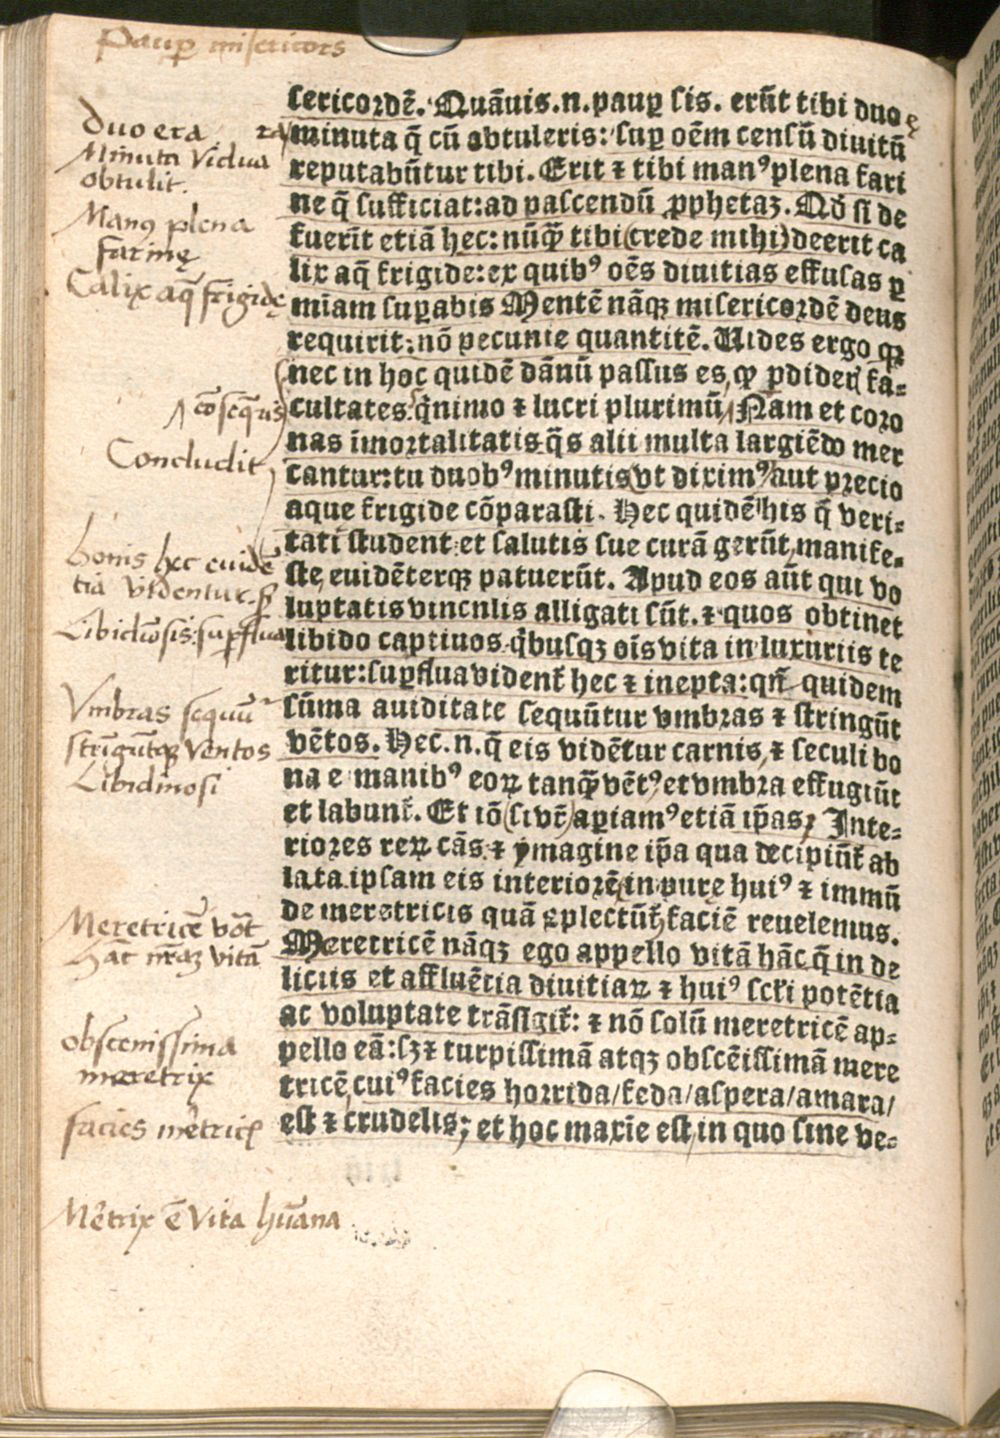 Paup misericors
sericordē. Quāuis.n.paup sis. erūt tibi duo
minuta q̄ cū abtuleris: sup oēm censū diuitū
reputabūtur tibi. Erit ⁊ tibi manꝰ plena fari
ne q̄ sufficiat: ad pascendū ꝓphetaz. Nō si de
fuerit etiā hec: nūꝙ̄ tibi (crede mihi) deerit ca
lix aq̄ frigide: ex quibꝰ oēs diuitias effusas ꝑ
miam suꝑabis Mentē nāqꝫ misericordē deus
requirit: nō pecunie quantitē. Uides ergo qꝛ
nec in hoc quidē dānū passus es, ꝙ ꝑdider̄ fa-
cultates. q̇nimo ⁊ lucri plurimū, Nam et coro
nas īmortalitatis q̄s alii multa largiēdo mer
cantur: tu duobꝰ minutis vt diximꝰ aut precio
aque frigide cōparasti. Hec quidē his q̄ veri-
tati student et salutis sue curā gerūt, manife-
ste, euidēterqꝫ patuerūt. Apud eos aūt qui vo
luptatis vinculis alligati sūt. ⁊ quos obtinet
libido captiuos q̇busqꝫ oīs vita in luxuriis te
ritur: suꝑflua vident̄ hec ⁊ inepta: qn̄ quidem
sūma auiditate sequūtur vmbras ⁊ stringūt
vētos. Hec.n.q̄ eis vidētur carnis, ⁊ seculi bo
na e manibꝰ eoꝝ tanꝙ̄ vētꝰ et vmbra effugiūt
et labunt̄. Et iō (si vr̄) aꝑiamꝰ etiā ip̄as, Inte-
riores reꝝ cās ⁊ ymagine ip̄a qua decipiūt̄ ab
lata ipsam eis interiorē, in pure huiꝰ ⁊ immū
de meretricis quā ꝯplectūt̄, faciē reuelemus.
Meretricē nāqꝫ ego appello vitā hāc q̄ in de
liciis et affluētia diuitiaꝝ ⁊ huiꝰ scl̄i potētia
ac voluptate trāsigit̄: ⁊ nō solū meretricē ap-
pello eā: sꝫ ⁊ turpissimā atqꝫ obscēissimā mere
tricē, cuiꝰ facies horrida/feda/aspera/amara/
est ⁊ crudelis; et hoc maxīe est, in quo sine ve-
Duo era
Minuta Vidua
obtulit.
Manꝰ plena
farinę
Calix aq̄ frigidę
cōseq̄ris
Concludit
bonis hec euidē
tia videntur. sꝫ
Libidīosis. suꝑflua
Vmbras sequū
strīgūtqꝫ Ventos
Libidinosi
Meretricē vōt
hāc nr̄aꝫ vitā
obscenissima
meretrix
facies mēr̄tricꝭ
Mēr̄trix ē Vita hūana